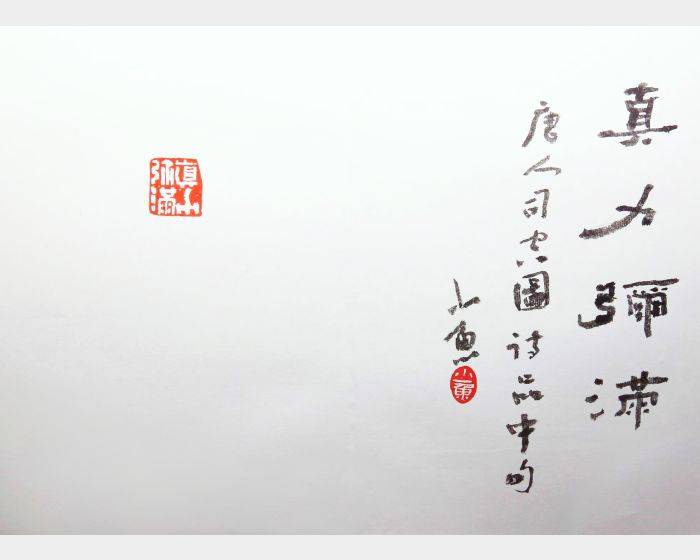 真力彌满
唐人司空圖诗品中句
小鱼
小魚
真力
弥滿